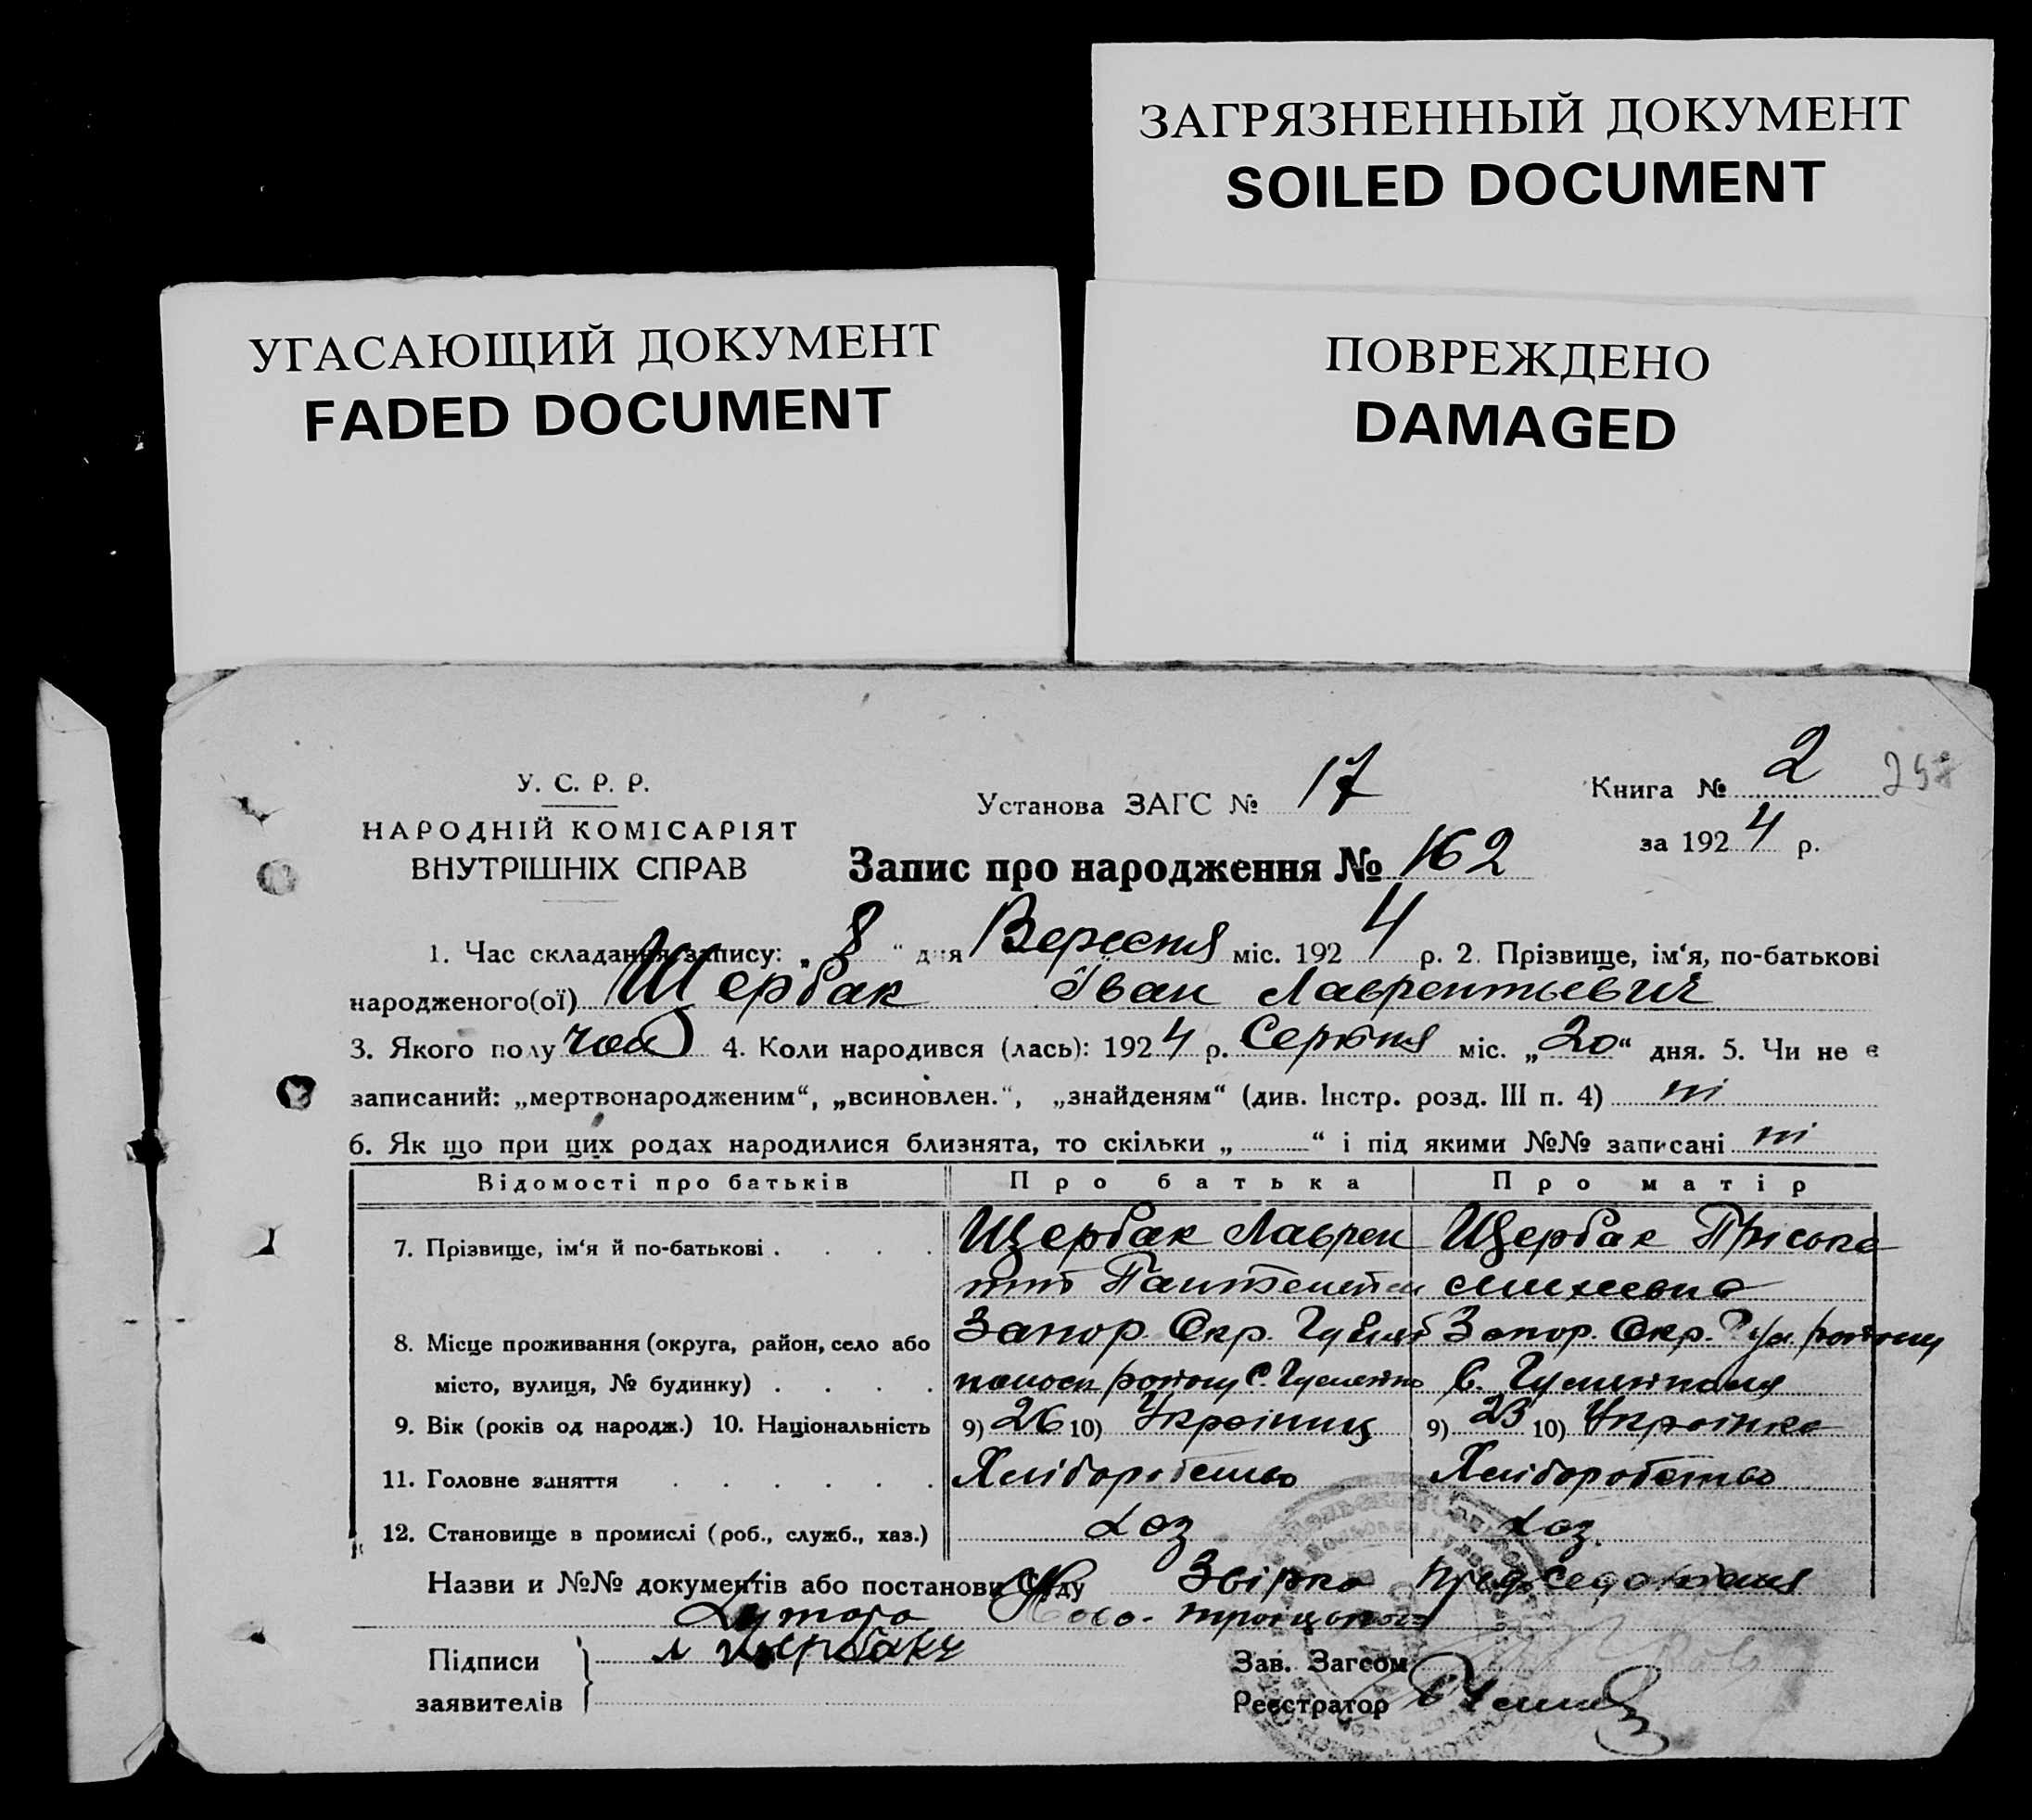 ЗАГРЯЗНЕННЫЙ ДОКУМЕНТ
SOILED DOCUMENT
УГАСАЮЩИЙ ДОКУМЕНТ
FADED DOCUMENT
ПОВРЕЖДЕНО
DAMAGED
У. С. Р. Р.
НАРОДНІЙ КОМІСАРІЯТ
ВНУТРІШНІХ СПРАВ
Установа ЗАГС № 17
Книга № 2
за 1924 р.
Запис про народження № 162
1. Час складання запису: „8“ дня Вересня міс. 1924 р. 2. Прізвище, ім‘я, по-батькові
народженого(ої) Щербак Іван Лаврентьевич
3. Якого полу чол 4. Коли народився (лась): 1924 р. Серпня міс. „20“ дня. 5. Чи не є
записаний: „мертвонародженим“, „всиновлен.“, „знайденям“ (див. Інстр. розд. III п. 4) ні
6. Як що при цих родах народилися близнята, то скільки „ “ і під якими №№ записані ні
Відомості про батьків Про батька Про матір
7. Прізвище, ім‘я й по-батькові Щербак Лаврен Щербак
8. Місце проживання (округа, район, село або Запор. Окр. Запор. Окр.
місто, вулиця, № будинку) району с. С.
9. Вік (років од народж.) 10. Національність 9) 26 10) Украінец 9) 23 10) Украінка
11. Головне заняття Хліборобство Хліборобство
12. Становище в промислі (роб., служб., хаз.) хаз хаз.
Назви и №№ документів або постанови Суду
Хутора Ново-
Підписи
заявителів
Л Щербак
Зав. Загсом
Реєстратор